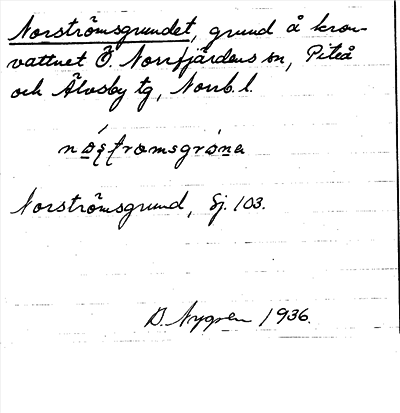 Norströmsgrundet, grund å kron-
vattnet Ö. Norrfjärdens sn, Piteå
och Älvsby tg, Norrb. l.
Norströmsgrund, Sj. 103.
D. Nygren 1936.